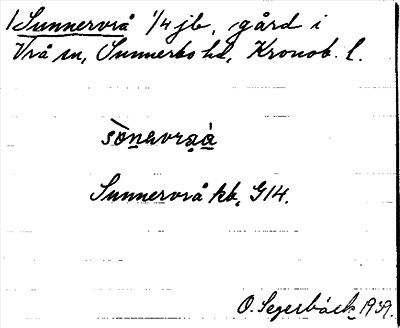 1 Sunnervrå 1/4 jb, gård i
Vrå sn, Sunnerbo hd, Kronob. l.
sònavraà
Sunnervrå kb, G14.
O. Segerbäck 1939.